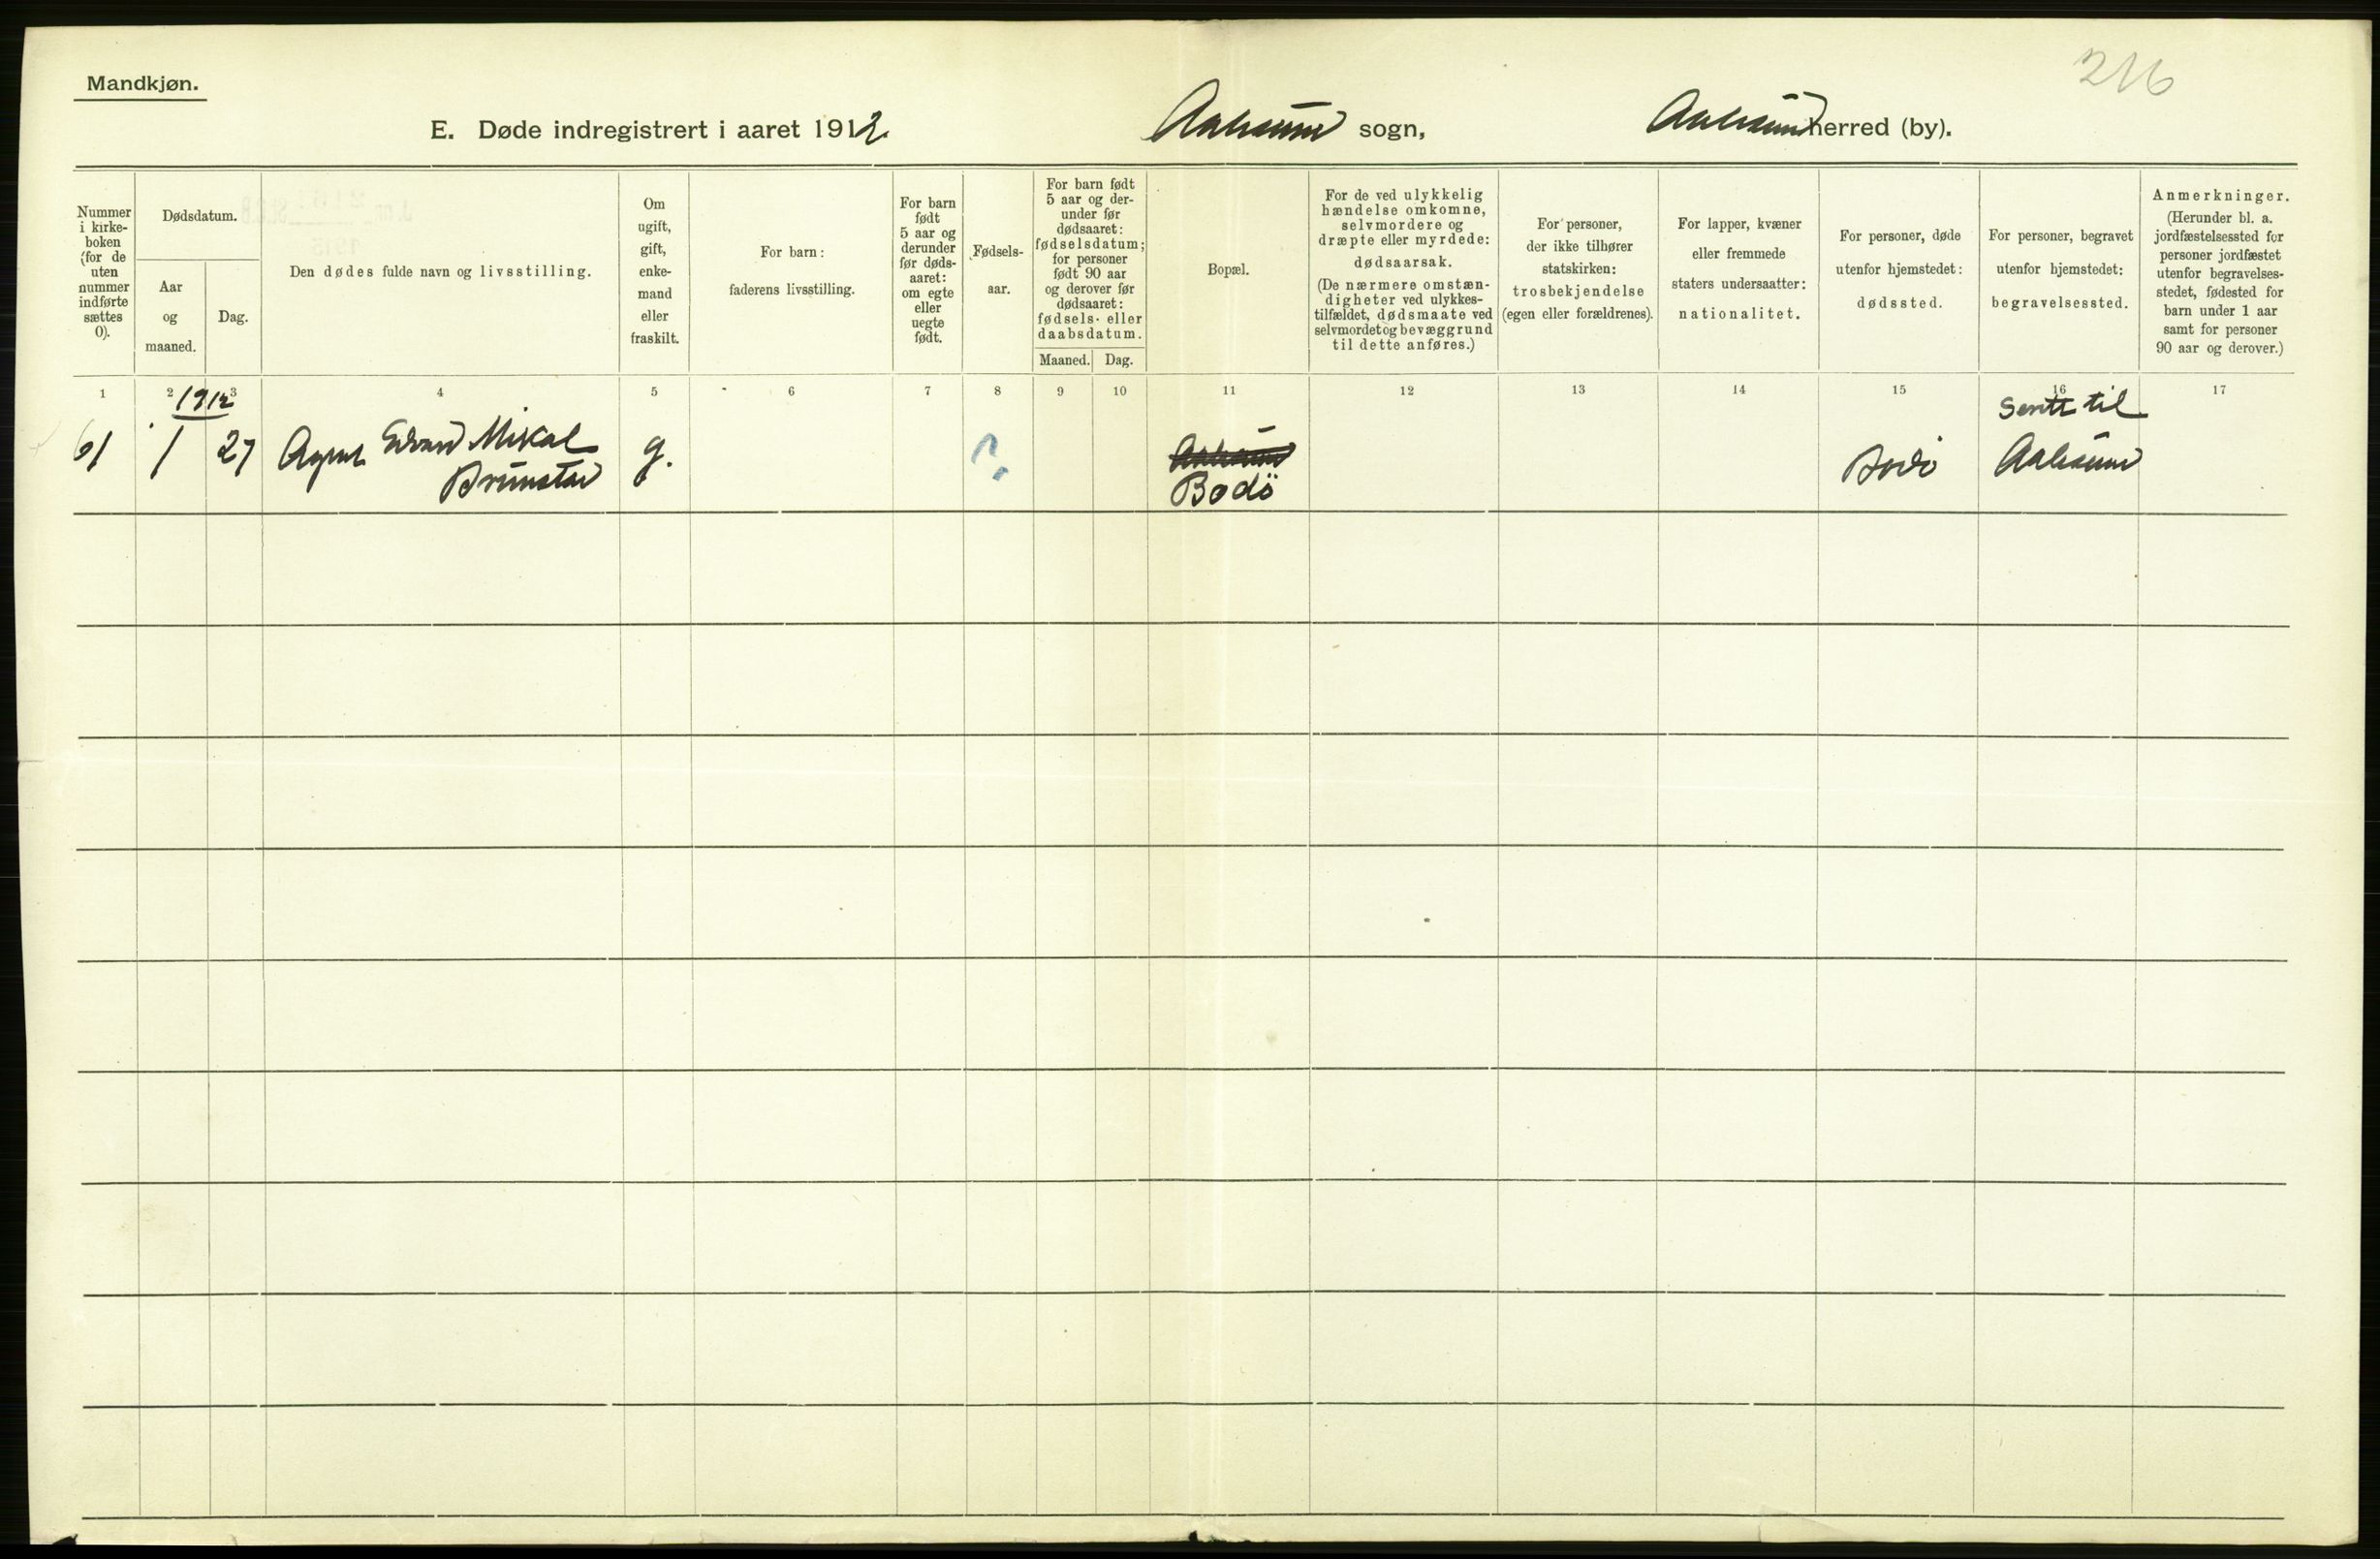 Mandkjøn.
216
E. Døde indregistrert i aaret 1912 Aalesund sogn, Aalesund herred (by).
Nummer
i kirke-
boken
(for de
uten
nummer
indførte
sættes
0).
Dødsdatum.
Aar
og
maaned.
Dag.
Den dødes fulde navn og livsstilling.
Om
ugift,
gift,
enke-
mand
eller
fraskilt.
For barn:
faderens livsstilling.
For barn
født
5 aar og
derunder
før døds-
aaret:
om egte
eller
uegte
født.
Fødsels-
aar.
For barn født
5 aar og der-
under før
dødsaaret:
fødselsdatum;
for personer
født 90 aar
og derover før
dødsaaret:
fødsels- eller
daabsdatum.
Maaned. Dag.
Bopæl.
For de ved ulykkelig
hændelse omkomne,
selvmordere og
dræpte eller myrdede:
dødsaarsak.
(De nærmere omstæn-
digheter ved ulykkes-
tilfældet, dødsmaate ved
selvmordet og bevæggrund
til dette anføres.)
For personer,
der ikke tilhører
statskirken:
trosbekjendelse
(egen eller forældrenes).
For lapper, kvæner
eller fremmede
staters undersaatter:
nationalitet.
For personer, døde
utenfor hjemstedet:
dødssted.
For personer, begravet
utenfor hjemstedet:
begravelsessted.
Anmerkninger.
(Herunder bl. a.
jordfæstelsessted for
personer jordfæstet
utenfor begravelses-
stedet, fødested for
barn under 1 aar
samt for personer
90 aar og derover.)
1 2 3 4 5 6 7 8 9 10 11 12 13 14 15 16 17
1912
sendt til
61 1 27 Agent Edvard Mikal g. ? Aalesund Bodö Aalesund
Brunstad Bodö